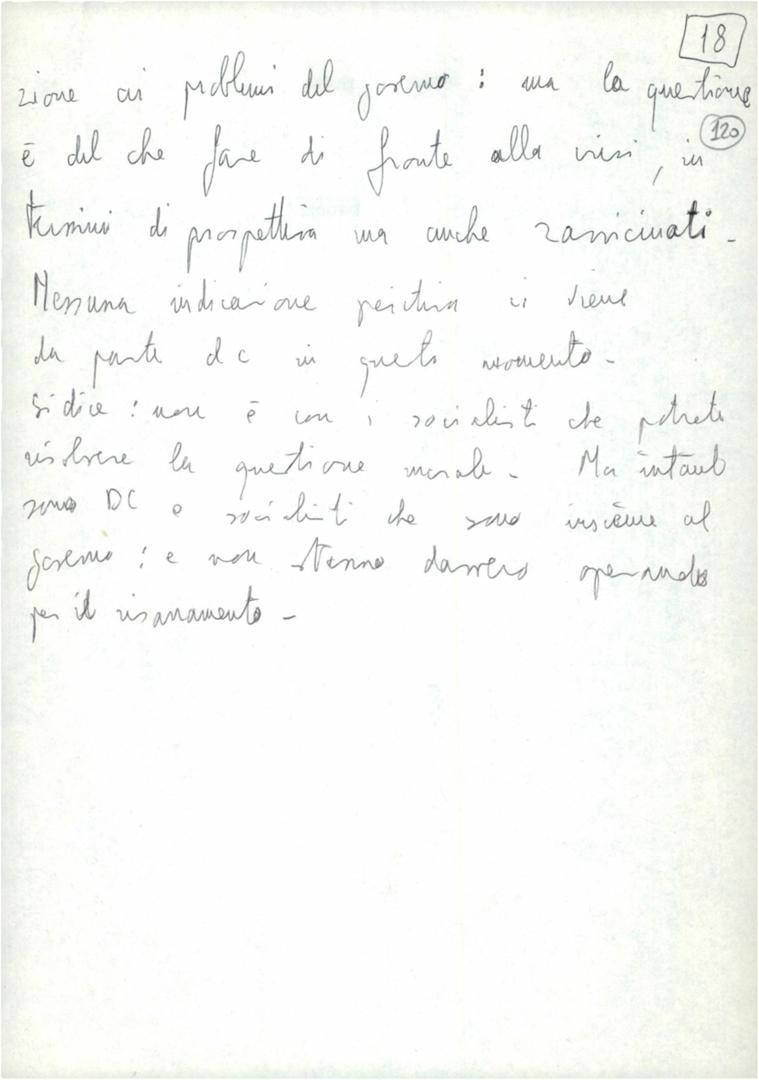 18
zione ai problemi del governo : ma la questione
120
è del che fare di fronte alla crisi, in
termini di prospettiva ma anche ravvicinati.
Nessuna indicazione positiva ci viene
da parte dc in questo momento.
Si dice : non è con i socialisti che potrete
risolvere la questione morale. Ma intanto
sono DC e socialisti che sono insieme al
governo : e non stanno davvero operando
per il risanamento -